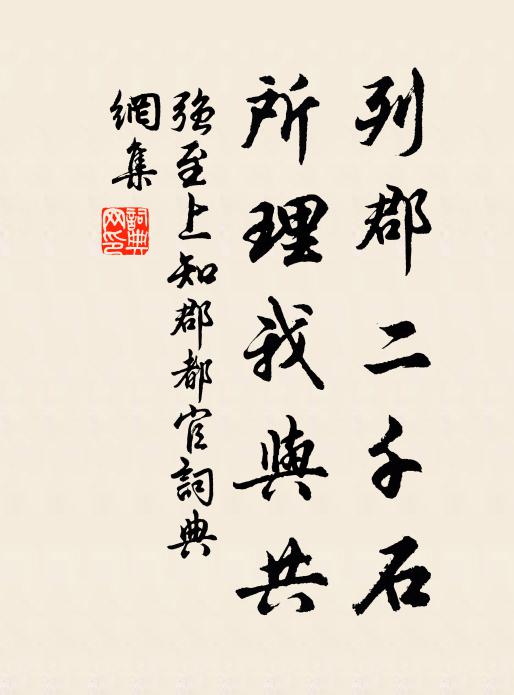 列郡二千石
所理我與共
強至上知郡都官詞典
網集
詞典
网印